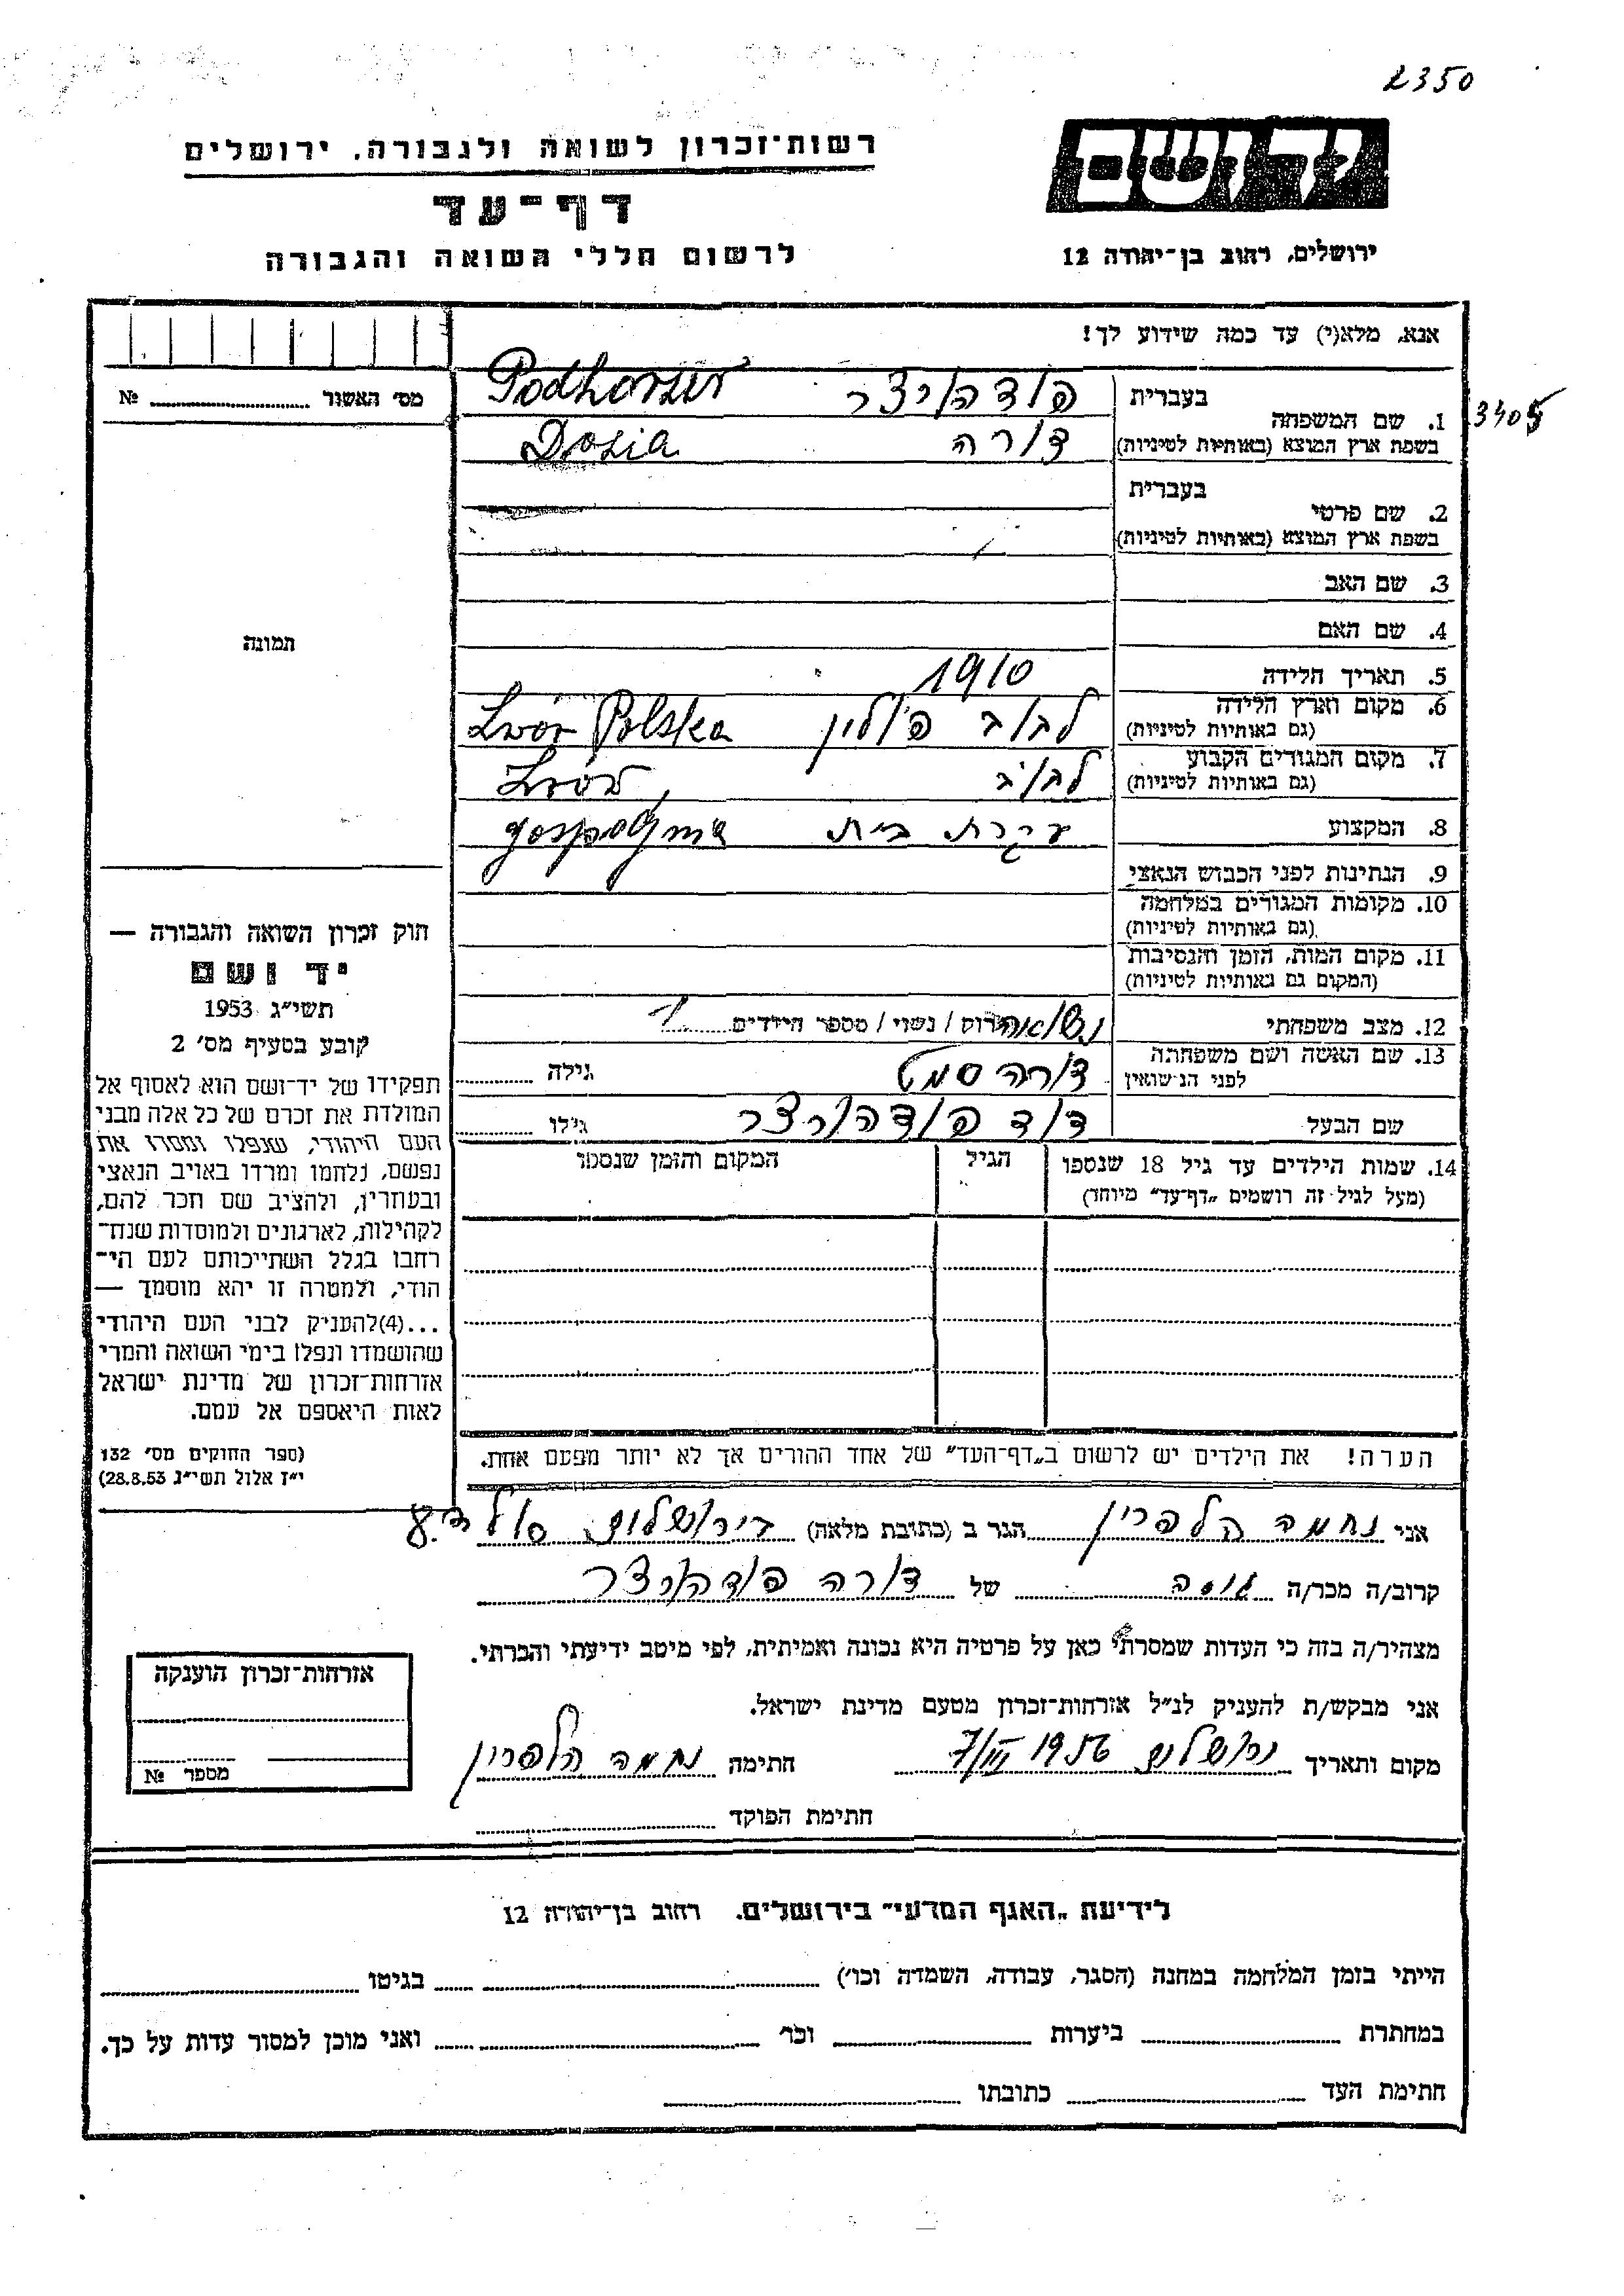 2350
יד ושם
רשות־זכרון לשואה ולגבורה, ירושלים
דף־עד
לרשום חללי השואה והגבורה
ירושלים, רחוב בן־יהודה 12
אנא, מלא(י) עד כמה שידוע לך!
מס׳ האשור № 
3405
1. שם המשפחה
בעברית
פודהורצר Podhorzer
בשפת ארץ המוצא (באותיות לטיניות)
דורה Dozia
2. שם פרטי
בעברית
בשפת ארץ המוצא (באותיות לטיניות)
3. שם האב
4. שם האם
5. תאריך הלידה 1910
6. מקום וארץ הלידה
(גם באותיות לטיניות)
לבוב פולין Lwór Polska
7. מקום המגורים הקבוע
(גם באותיות לטיניות)
לבוב Lwór
8. המקצוע עקרת בית
9. הנתינות לפני הכבוש הנאצי
10. מקומות המגורים במלחמה
(גם באותיות לטיניות)
11. מקום המות, הזמן והנסיבות
(המקום גם באותיות לטיניות)
12. מצב משפחתי נשואה רוק / נשוי / מספר הילדים 1
13. שם האשה ושם משפחתה
לפני הנישואין
דורה סמט גילה
שם הבעל דוד פודהורצר גילו
14. שמות הילדים עד גיל 18 שנספו
(מעל לגיל זה רושמים „דף־עד” מיוחד)
הגיל
המקום והזמן שנספו
הערה! את הילדים יש לרשום ב„דף־העד” של אחד ההורים אך לא יותר מפעם אחת.
תמונה
חוק זכרון השואה והגבורה —
יד ושם
תשי״ג 1953
קובע בסעיף מס׳ 2
תפקידו של יד־ושם הוא לאסוף אל
המולדת את זכרם של כל אלה מבני
העם היהודי, שנפלו ומסרו את
נפשם, נלחמו ומרדו באויב הנאצי
ובעוזריו, ולהציב שם וזכר להם,
לקהילות, לארגונים ולמוסדות שנח־
רבו בגלל השתייכותם לעם הי־
הודי, ולמטרה זו יהא מוסמך —
...(4)להעניק לבני העם היהודי
שהושמדו ונפלו בימי השואה והמרי
אזרחות־זכרון של מדינת ישראל
לאות היאספם אל עמם.
(ספר החוקים מס׳ 132
י״ז אלול תשי״ג 28.8.53)
אני נחמה הלפרין הגר ב (כתובת מלאה) בירושלים
קרוב/ה מכר/ה של דורה פודהורצר
מצהיר/ה בזה כי העדות שמסרתי כאן על פרטיה היא נכונה ואמיתית, לפי מיטב ידיעתי והכרתי.
אני מבקש/ת להעניק לנ״ל אזרחות־זכרון מטעם מדינת ישראל.
מקום ותאריך ירושלים 7/III 1956 חתימה נחמה הלפרין
חתימת הפוקד
אזרחות־זכרון הוענקה
מספר №
לידיעת „האגף המדעי” בירושלים. רחוב בן־יהודה 12
הייתי בזמן המלחמה במחנה (הסגר, עבודה, השמדה וכו׳) בגיטו
במחתרת ביערות וכו׳ ואני מוכן למסור עדות על כך.
חתימת העד כתובתו